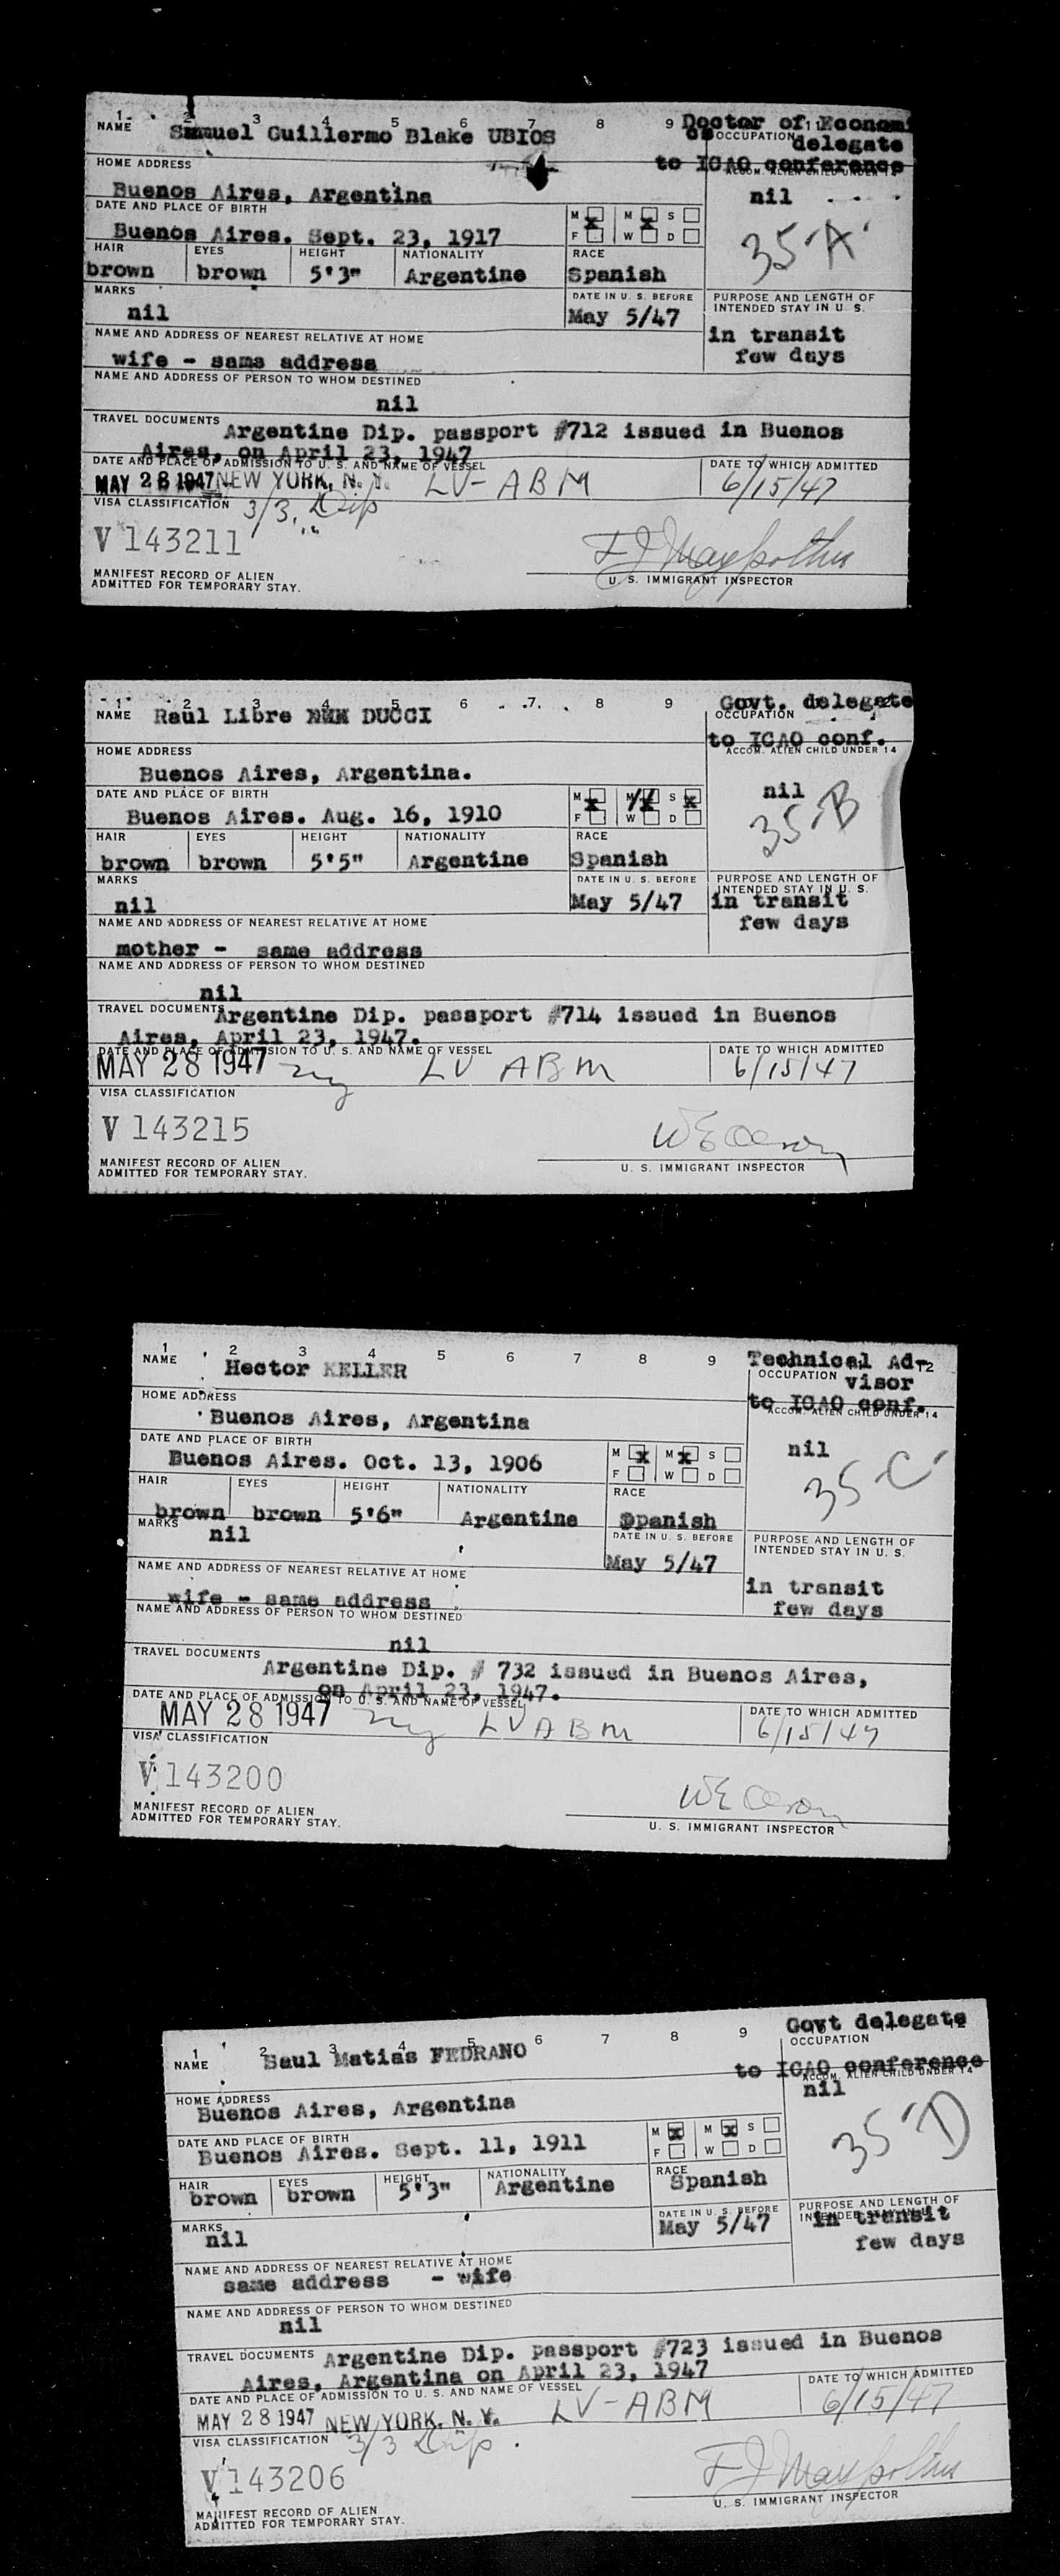 1 2 3 4 5 6 7 8 9 11
NAME Samuel Guillermo Blake UBIOS
Doctor of Economi
cs OCCUPATION delegate
to ICAO conference
ACCOM. ALIEN CHILD UNDER 14
nil
35'A'
HOME ADDRESS
Buenos Aires, Argentina
DATE AND PLACE OF BIRTH
Buenos Aires. Sept. 23, 1917
M x M x S
F W D
HAIR EYES HEIGHT NATIONALITY RACE
brown brown 5'3" Argentine Spanish
MARKS
nil
DATE IN U. S. BEFORE
May 5/47
PURPOSE AND LENGTH OF
INTENDED STAY IN U. S.
in transit
few days
NAME AND ADDRESS OF NEAREST RELATIVE AT HOME
wife - same address
NAME AND ADDRESS OF PERSON TO WHOM DESTINED
nil
TRAVEL DOCUMENTS Argentine Dip. passport #712 issued in Buenos
Aires, on April 23, 1947
DATE AND PLACE OF ADMISSION TO U. S. AND NAME OF VESSEL
DATE TO WHICH ADMITTED
MAY 28 1947 NEW YORK, N. Y. LV-ABM 6/15/47
VISA CLASSIFICATION 3/3, Dip
V 143211
MANIFEST RECORD OF ALIEN
ADMITTED FOR TEMPORARY STAY.
U. S. IMMIGRANT INSPECTOR
1 2 3 4 5 6 7 8 9
NAME Raul Libre DUCCI
Govt. delegate
OCCUPATION
to ICAO conf.
ACCOM. ALIEN CHILD UNDER 14
nil
35-B
HOME ADDRESS
Buenos Aires, Argentina.
DATE AND PLACE OF BIRTH
Buenos Aires. Aug. 16, 1910
M x M x S x
F W D
HAIR EYES HEIGHT NATIONALITY RACE
brown brown 5'5" Argentine Spanish
MARKS
nil
DATE IN U. S. BEFORE
May 5/47
PURPOSE AND LENGTH OF
INTENDED STAY IN U. S.
in transit
few days
NAME AND ADDRESS OF NEAREST RELATIVE AT HOME
mother - same address
NAME AND ADDRESS OF PERSON TO WHOM DESTINED
nil
TRAVEL DOCUMENTS Argentine Dip. passport #714 issued in Buenos
Aires, April 23, 1947.
DATE AND PLACE OF ADMISSION TO U. S. AND NAME OF VESSEL
DATE TO WHICH ADMITTED
MAY 28 1947 ny LV ABM 6/15/47
VISA CLASSIFICATION
V 143215
MANIFEST RECORD OF ALIEN
ADMITTED FOR TEMPORARY STAY.
U. S. IMMIGRANT INSPECTOR
1 2 3 4 5 6 7 8 9 12
NAME Hector KELLER
Technical Ad-
OCCUPATION visor
to ICAO conf.
ACCOM. ALIEN CHILD UNDER 14
nil
35-C'
HOME ADDRESS
Buenos Aires, Argentina
DATE AND PLACE OF BIRTH
Buenos Aires. Oct. 13, 1906
M x M x S
F W D
HAIR EYES HEIGHT NATIONALITY RACE
brown brown 5'6" Argentine Spanish
MARKS
nil
DATE IN U. S. BEFORE
May 5/47
PURPOSE AND LENGTH OF
INTENDED STAY IN U. S.
in transit
few days
NAME AND ADDRESS OF NEAREST RELATIVE AT HOME
wife - same address
NAME AND ADDRESS OF PERSON TO WHOM DESTINED
nil
TRAVEL DOCUMENTS Argentine Dip. # 732 issued in Buenos Aires,
on April 23, 1947.
DATE AND PLACE OF ADMISSION TO U. S. AND NAME OF VESSEL
DATE TO WHICH ADMITTED
MAY 28 1947 ny LV ABM 6/15/47
VISA CLASSIFICATION
V 143200
MANIFEST RECORD OF ALIEN
ADMITTED FOR TEMPORARY STAY.
U. S. IMMIGRANT INSPECTOR
1 2 3 4 5 6 7 8 9 12
NAME Saul Matias FEDRANO
Govt delegate
OCCUPATION
to ICAO conference
ACCOM. ALIEN CHILD UNDER 14
nil
35'D
HOME ADDRESS
Buenos Aires, Argentina
DATE AND PLACE OF BIRTH
Buenos Aires. Sept. 11, 1911
M x M x S
F W D
HAIR EYES HEIGHT NATIONALITY RACE
brown brown 5'3" Argentine Spanish
MARKS
nil
DATE IN U. S. BEFORE
May 5/47
PURPOSE AND LENGTH OF
INTENDED STAY IN U. S.
in transit
few days
NAME AND ADDRESS OF NEAREST RELATIVE AT HOME
same address - wife
NAME AND ADDRESS OF PERSON TO WHOM DESTINED
nil
TRAVEL DOCUMENTS Argentine Dip. passport #723 issued in Buenos
Aires, Argentina on April 23, 1947
DATE AND PLACE OF ADMISSION TO U. S. AND NAME OF VESSEL
DATE TO WHICH ADMITTED
MAY 28 1947 NEW YORK, N. Y. LV-ABM 6/15/47
VISA CLASSIFICATION 3/3 Dip.
V 143206
MANIFEST RECORD OF ALIEN
ADMITTED FOR TEMPORARY STAY.
U. S. IMMIGRANT INSPECTOR